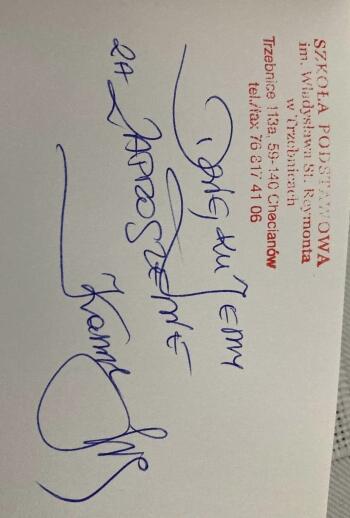 SZKOŁA PODSTAWOWA
im. Władysława St. Reymonta
w Trzebnicach
Trzebnice 113a, 59-140 Chocianów
tel./fax 76 817 41 06
DZIĘKUJEMY
ZA ZAPROSZENIE
Kamil